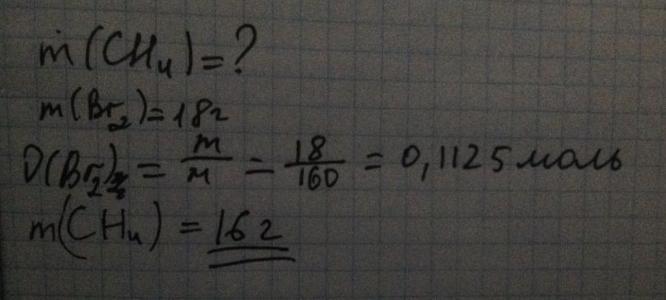 m(CH₄)=?
m(Br₂)=18г
υ(Br₂) = m/м = 18/160 = 0,1125 моль
m(CH₄) = 16г